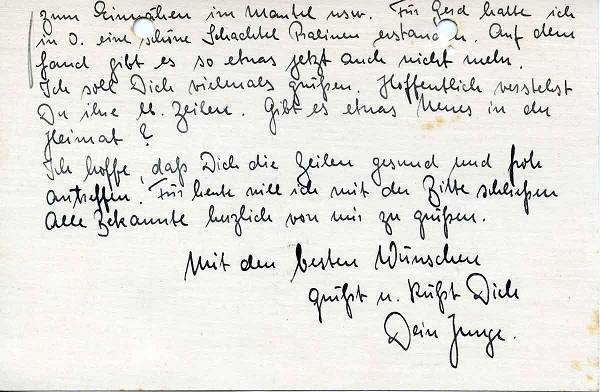 zum Einnähen im Mantel usw. Für Gerd hatte ich
in O. eine schöne Schachtel Pralinen erstanden. Auf dem
Land gibt es so etwas jetzt auch nicht mehr.
Ich soll Dich vielmals grüßen. Hoffentlich verstehst
Du ihre lb. Zeilen. Gibt es etwas Neues in der
Heimat?
Ich hoffe, daß Dich die Zeilen gesund und froh
antreffen. Für heute will ich mit der Bitte schließen
alle Bekannte herzlich von mir zu grüßen.
Mit den besten Wünschen
grüßt u. küßt Dich
Dein Junge.